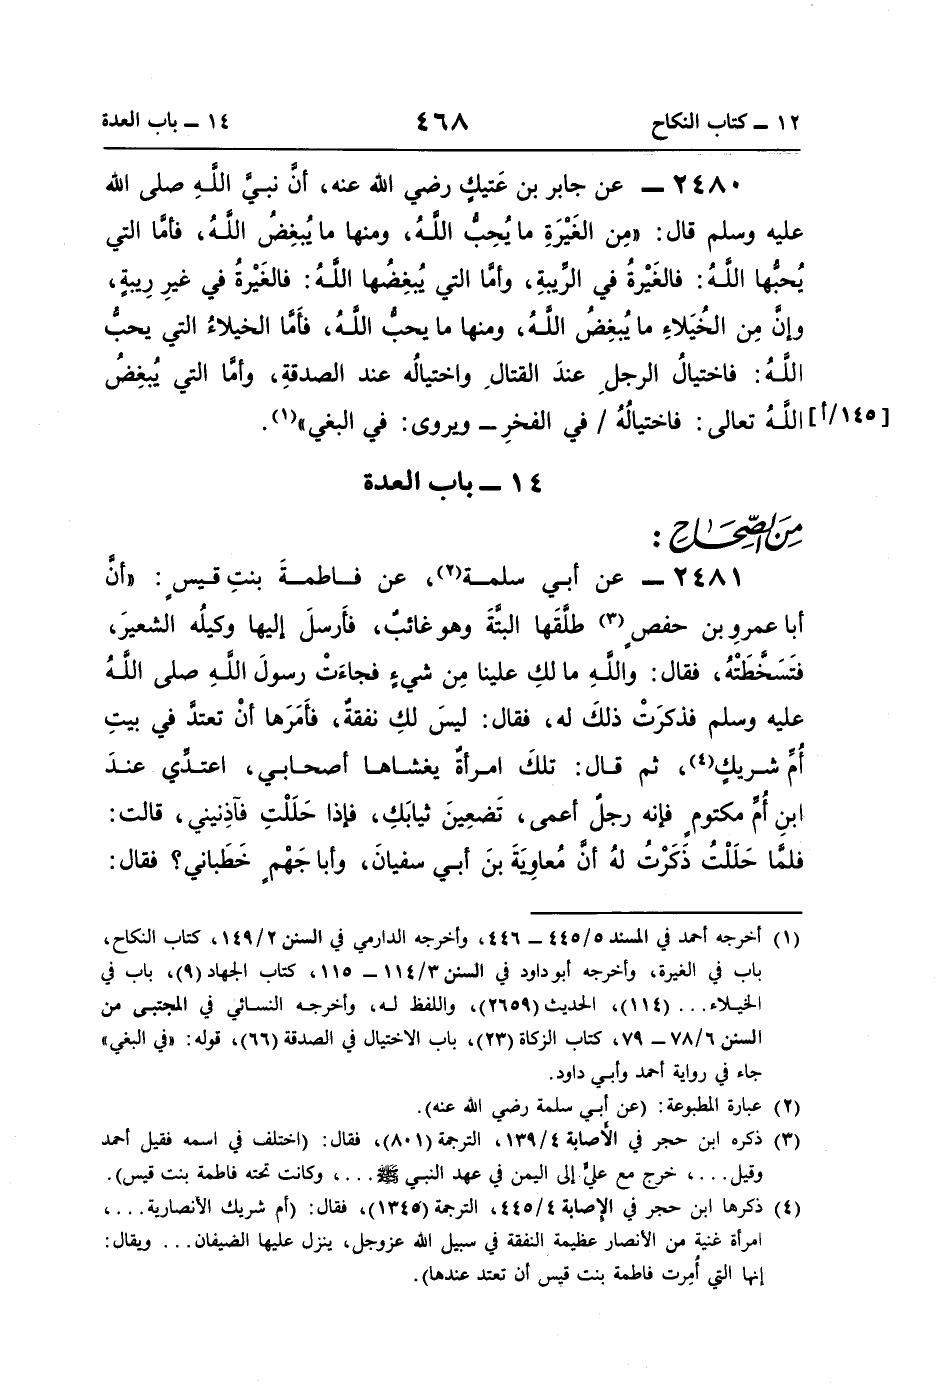 ١٢ ــ كتاب النكاح ٤٦٨ ١٤ ــ باب العدة
٢٤٨٠ ــ عن جابر بن عَتيكٍ رضي الله عنه، أنَّ نبيَّ اللَّهِ صلى الله
عليه وسلم قال: «مِن الغَيْرَةِ ما يُحِبُّ اللَّهُ، ومنها ما يُبغِضُ اللَّهُ، فأمَّا التي
يُحبُّها اللَّهُ: فالغَيْرةُ في الرِّيبةِ، وأمَّا التي يُبغِضُها اللَّهُ: فالغَيْرةُ في غيرِ رِيبةٍ،
وإنَّ مِن الخُيَلاءِ ما يُبغِضُ اللَّهُ، ومنها ما يحبُّ اللَّهُ، فأَمَّا الخيلاءُ التي يحبُّ
اللَّهُ: فاختيالُ الرجلِ عندَ القتالِ واختيالُه عند الصدقةِ، وأمَّا التي يُبغِضُ
[١٤٥/أ] اللَّهُ تعالى: فاختيالُهُ / في الفخرِ ــ ويروى: في البغي»(١).
١٤ ــ باب العدة
مِنَ الصِّحَاحِ :
٢٤٨١ ــ عن أبي سلمة(٢)، عن فاطمةَ بنتِ قيسٍ: «أنَّ
أبا عمرِو بن حفصٍ(٣) طلَّقَها البتَّةَ وهو غائبٌ، فأَرسلَ إليها وكيلُه الشعيرَ،
فتَسَخَّطَتْهُ، فقال: واللَّهِ ما لكِ علينا مِن شيءٍ فجاءَتْ رسولَ اللَّهِ صلى اللَّهُ
عليه وسلم فذكرَتْ ذلكَ له، فقال: ليسَ لكِ نفقةٌ، فأَمَرَها أنْ تعتدَّ في بيتِ
أُمِّ شريكٍ(٤)، ثم قال: تلكَ امرأةٌ يغشاها أصحابي، اعتدِّي عندَ
ابنِ أُمِّ مكتومٍ فإنه رجلٌ أعمى، تَضعِينَ ثيابَكِ، فإذا حَلَلْتِ فآذِنيني، قالت:
فلمَّا حَلَلْتُ ذَكَرْتُ لهُ أنَّ مُعاوِيَةَ بنَ أبي سفيانَ، وأبا جَهْمٍ خَطَباني؟ فقال:
(١) أخرجه أحمد في المسند ٤٤٥/٥ ــ ٤٤٦، وأخرجه الدارمي في السنن ١٤٩/٢، كتاب النكاح،
باب في الغيرة، وأخرجه أبو داود في السنن ١١٤/٣ ــ ١١٥، كتاب الجهاد (٩)، باب في
الخيلاء... (١١٤)، الحديث (٢٦٥٩)، واللفظ له، وأخرجه النسائي في المجتبى من
السنن ٧٨/٦ ــ ٧٩، كتاب الزكاة (٢٣)، باب الاختيال في الصدقة (٦٦)، قوله: «في البغي»
جاء في رواية أحمد وأبي داود.
(٢) عبارة المطبوعة: (عن أبي سلمة رضي الله عنه).
(٣) ذكره ابن حجر في الأصابة ١٣٩/٤، الترجمة (٨٠١)، فقال: (اختلف في اسمه فقيل أحمد
وقيل...، خرج مع عليٍّ إلى اليمن في عهد النبي ﷺ...، وكانت تحته فاطمة بنت قيس).
(٤) ذكرها ابن حجر في الإصابة ٤٤٥/٤، الترجمة (١٣٤٥)، فقال: (أم شريك الأنصارية...،
امرأة غنية من الأنصار عظيمة النفقة في سبيل الله عزوجل، ينزل عليها الضيفان... ويقال:
إنها التي أُمِرت فاطمة بنت قيس أن تعتد عندها).